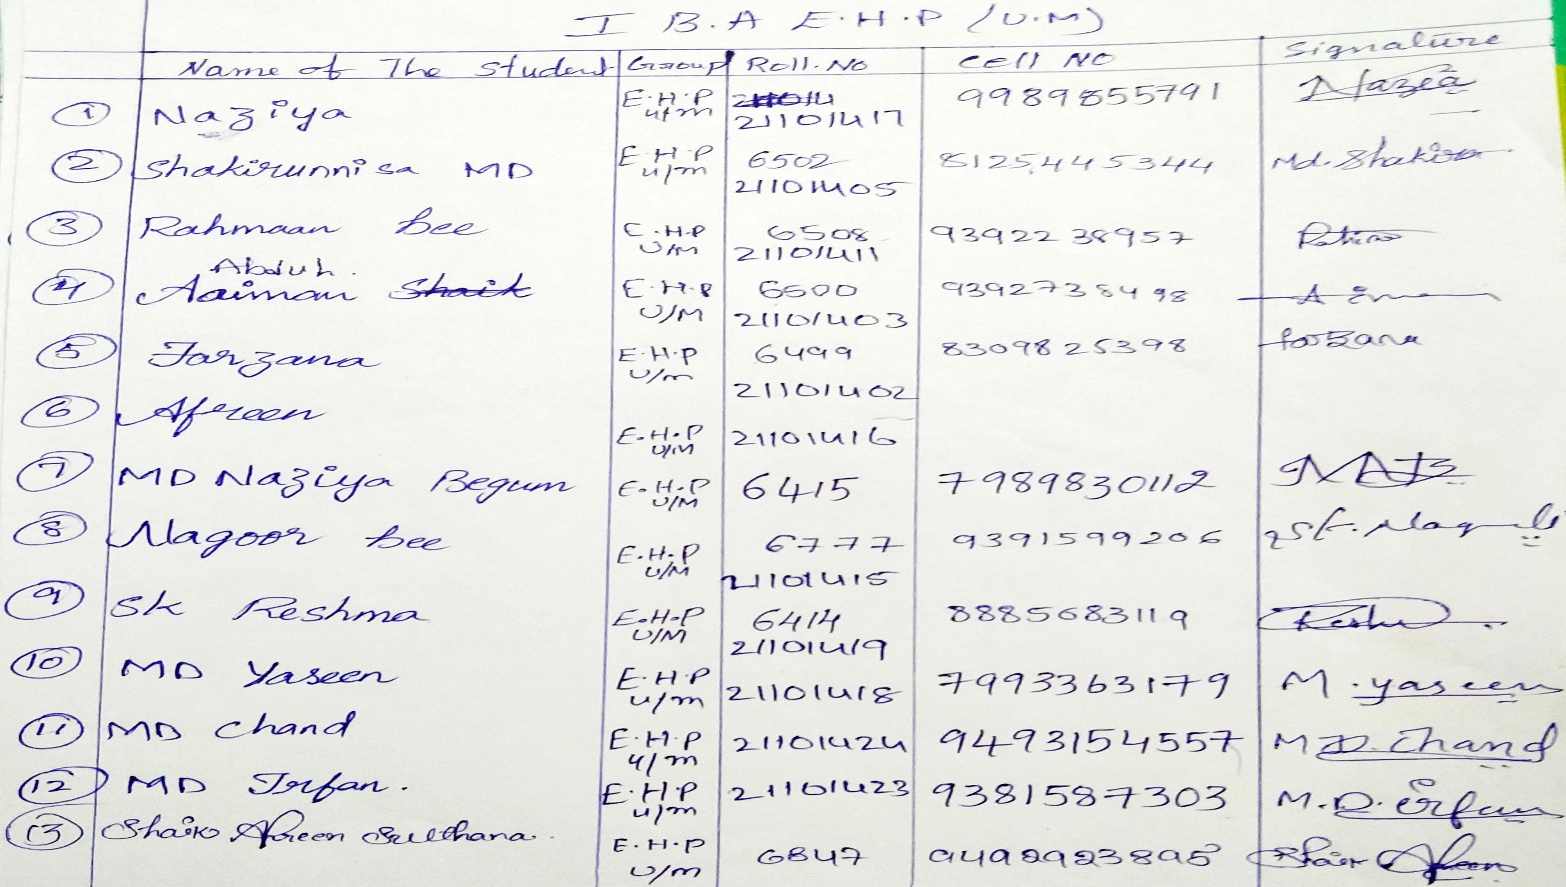 I B.A E.H.P (U.M)
Name of The Student Group Roll.No Cell No Signature
1 Naziya E.H.P u/m 21101417 9989855791 Nazea
2 Shakirunnisa MD E.H.P u/m 6502 21101405 8125445344 Md. Shakira
3 Rahmaan bee E.H.P U/M 6508 21101411 9392238957
Abduh.
4 Aaiman Shaik E.H.P U/M 6500 21101403 9392738498
5 Farzana E.H.P U/m 6499 21101402 8309825398 farzana
6 Afreen E.H.P U/M 21101416
7 MD Naziya Begum E.H.P U/M 6415 7989830112
8 Nagoor bee E.H.P U/M 6777 21101415 9391599206
9 SK Reshma E.H.P U/M 6414 21101419 8885683119
10 MD Yaseen E.H.P u/m 21101418 7993363179 M.yaseen
11 MD Chand E.H.P u/m 21101424 9493154557 MD.Chand
12 MD Irfan. E.H.P u/m 21101423 9381587303 M.D.irfan
13 Shaik Afreen Sulthana. E.H.P U/m 6847 9492923895 Shaik Afreen